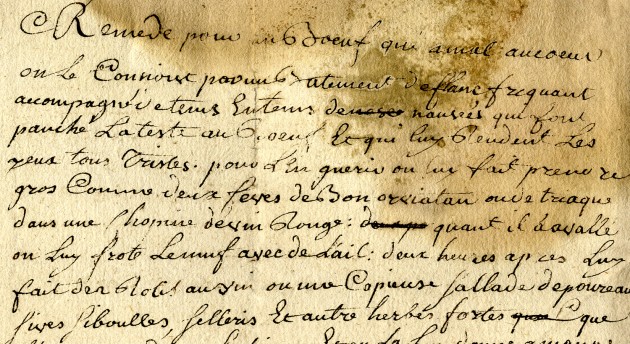 Remede pour un Boeuf qui a mal au coeur
on le Connoist par un Batement de flanc frequant
acompagné de tems En tems de nausées qui font
panché La teste au Boeuf Et qui luy Rendent Les
yeux tous Tristes. pour L'En guerir on luy fait prendre
gros Comme deux feves de Bon orviatan ou de triaque
dans une Chopine de vin Rouge: quant il a avallé
on Luy frote Le muf avec de L'ail: deux heures apres Luy
fait des Rotis au vin ou une Copieuse sallade de poureau
sives siboulles, selleris Et autre herbes fortes que